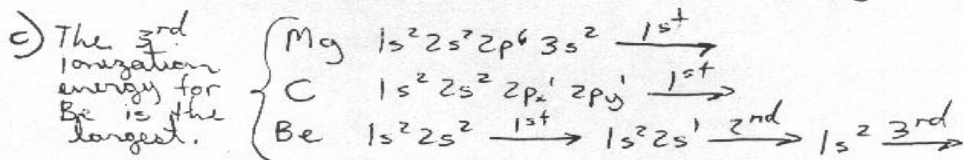 c) The 3rd ionization energy for Be is the largest.
Mg 1s² 2s² 2p⁶ 3s² 1st →
C 1s² 2s² 2px¹ 2py¹ 1st →
Be 1s² 2s² 1st → 1s² 2s¹ 2nd → 1s² 3rd →